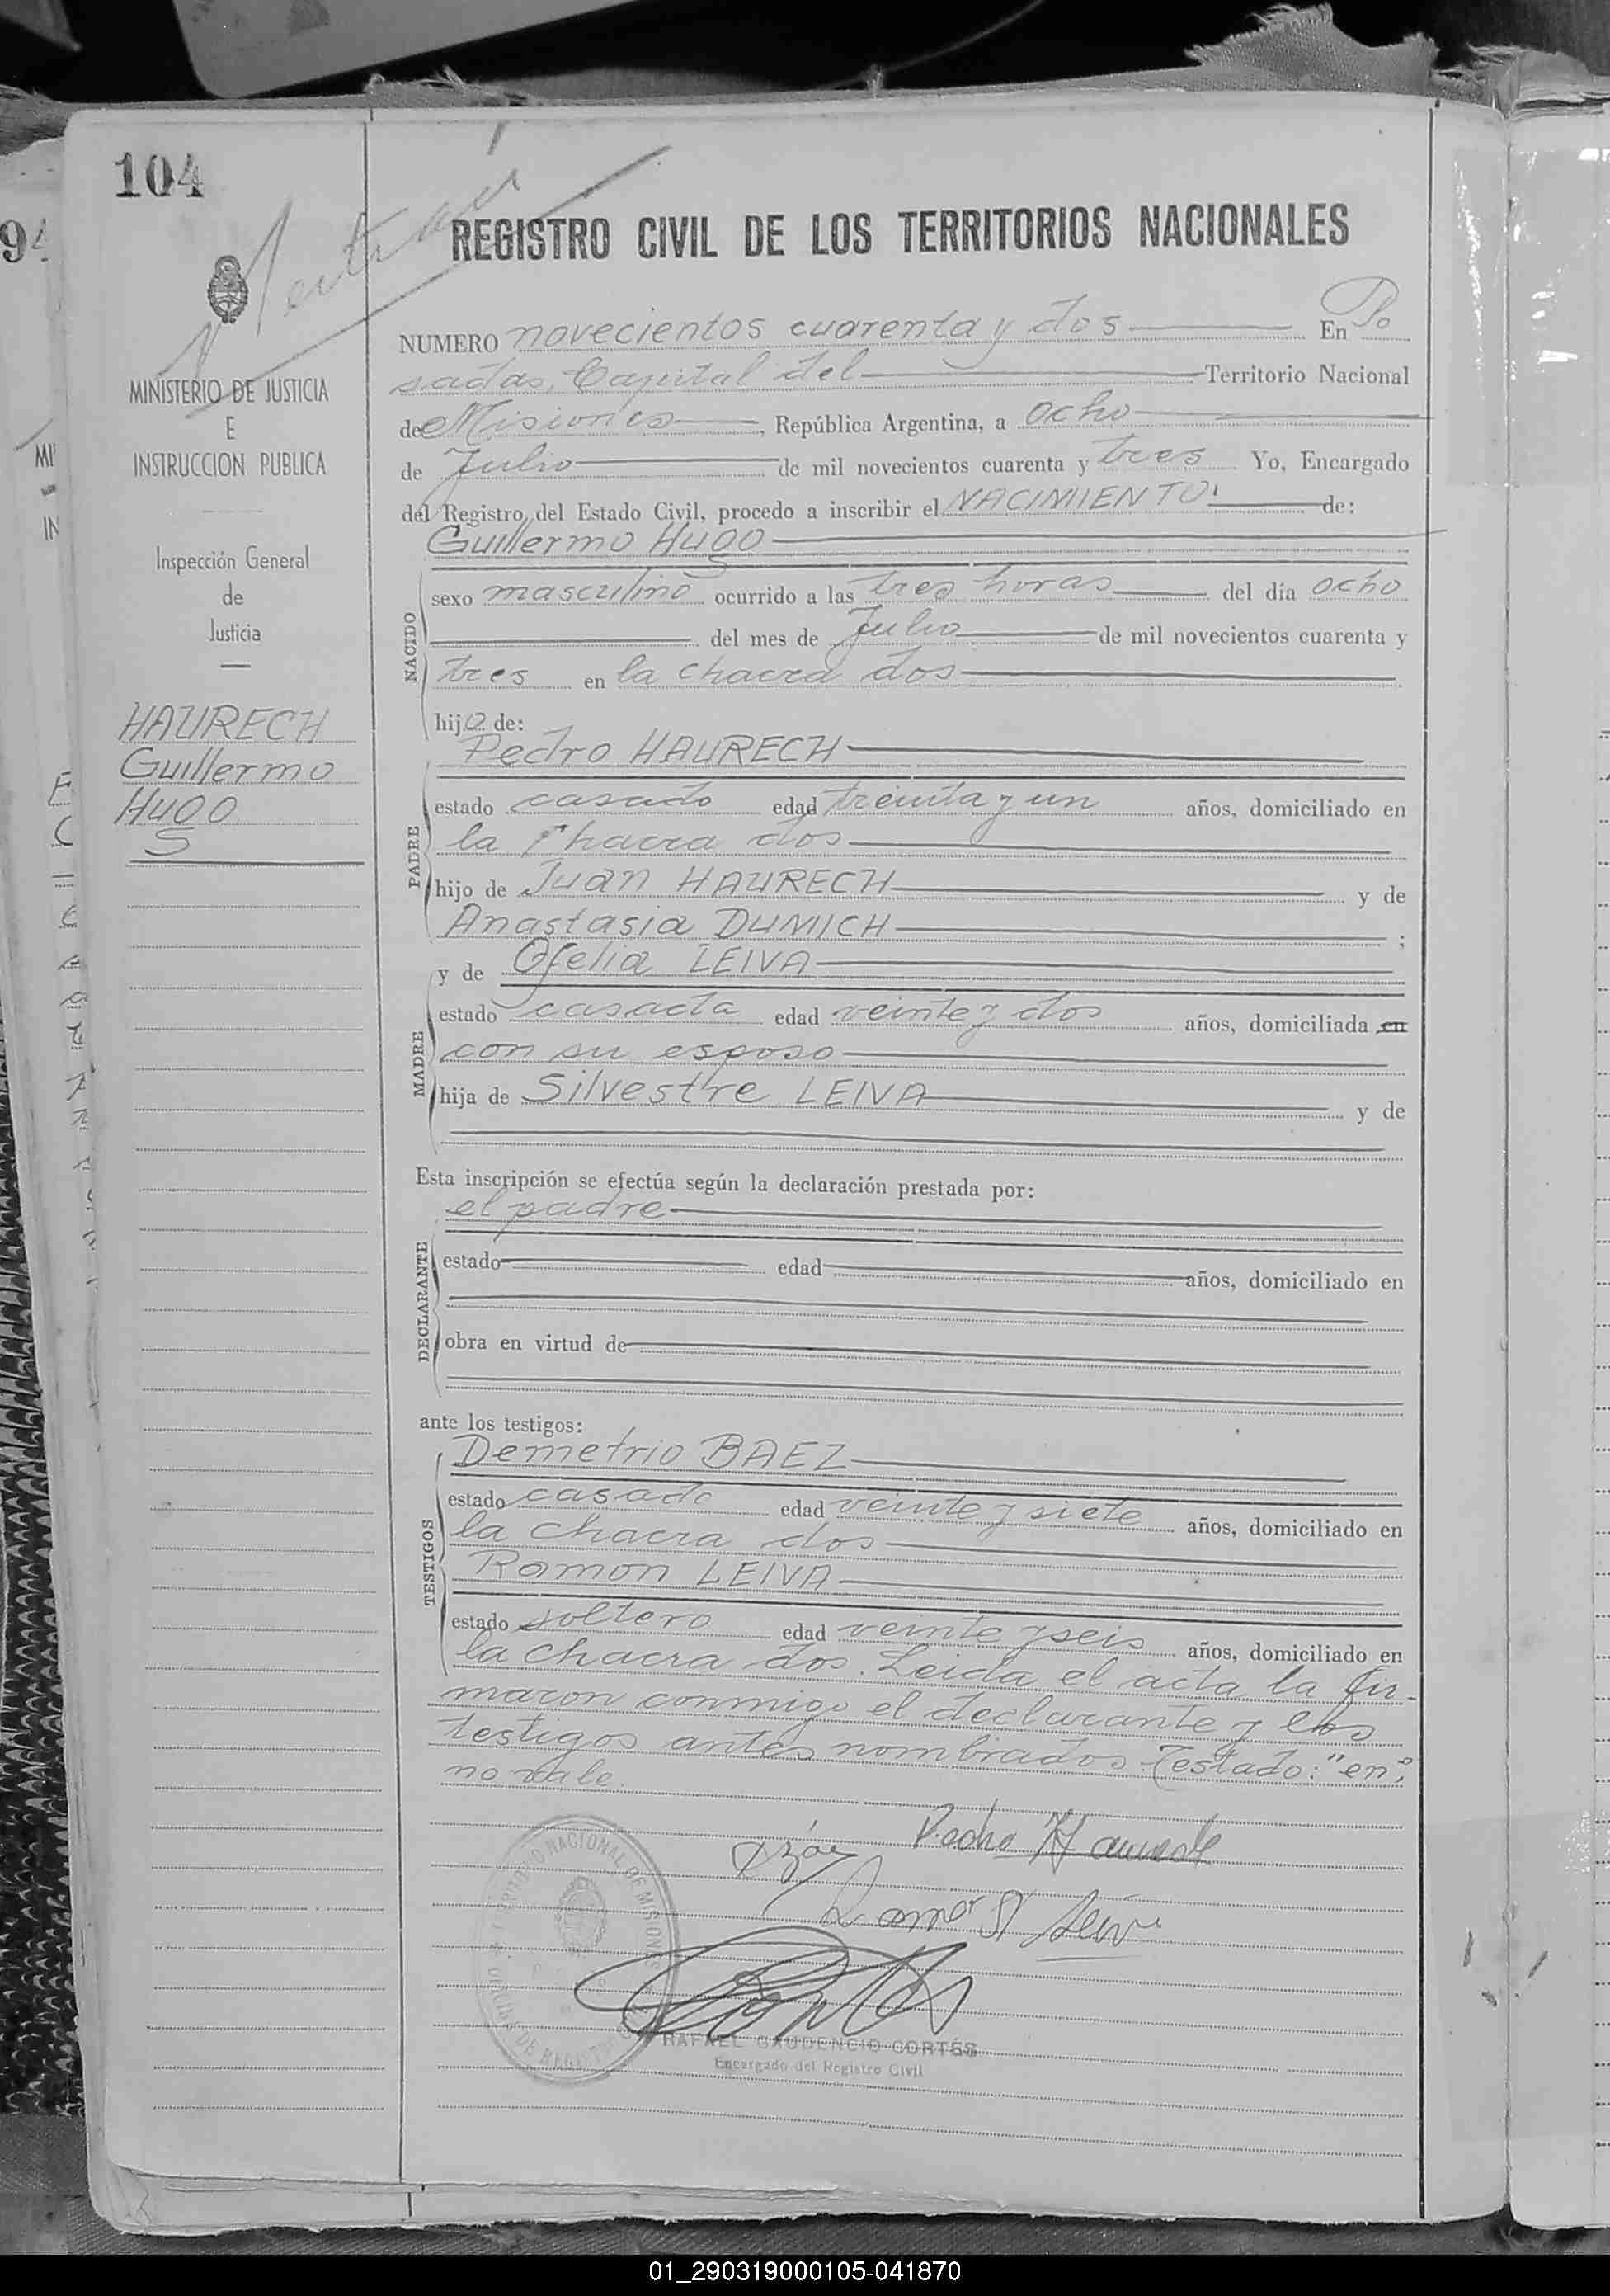 104
94
REGISTRO CIVIL DE LOS TERRITORIOS NACIONALES
MINISTERIO DE JUSTICIA
E
INSTRUCCION PUBLICA
Inspección General
de
Justicia
HAURECH
Guillermo
Hugo
NUMERO novecientos cuarenta y dos En Po
sadas, Capital del Territorio Nacional
de Misiones, República Argentina, a ocho
de Julio de mil novecientos cuarenta y tres Yo, Encargado
del Registro del Estado Civil, procedo a inscribir el NACIMIENTO de:
Guillermo Hugo
NACIDO
sexo masculino ocurrido a las tres horas del día ocho
del mes de Julio de mil novecientos cuarenta y
tres en la chacra dos
hijo de:
Pedro HAURECH
PADRE
estado casado edad treinta y un años, domiciliado en
la chacra dos
hijo de Juan HAURECH y de
Anastasia DUMICH ;
y de Ofelia LEIVA
MADRE
estado casada edad veinte y dos años, domiciliada en
con su esposo
hija de Silvestre LEIVA y de
Esta inscripción se efectúa según la declaración prestada por:
el padre
DECLARANTE
estado edad años, domiciliado en
obra en virtud de
ante los testigos:
Demetrio BAEZ
TESTIGOS
estado casado edad veinte y siete años, domiciliado en
la chacra dos
Ramon LEIVA
estado soltero edad veinte y seis años, domiciliado en
la chacra dos. Leida el acta la fir-
maron conmigo el declarante y los
testigos antes nombrados. Testado: "en":
no vale.
Pedro Haurech
RAFAEL GAUDENCIO CORTÉS
Encargado del Registro Civil
01_290319000105-041870